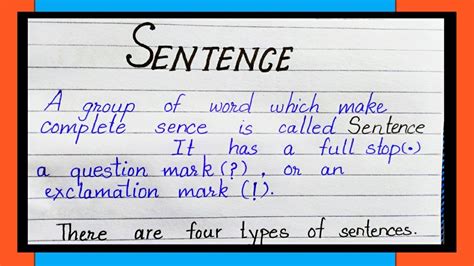 SENTENCE
A group of word which make
complete sence is called Sentence
It has a full stop(•)
a question mark (?), or an
exclamation mark (!).
There are four types of sentences.